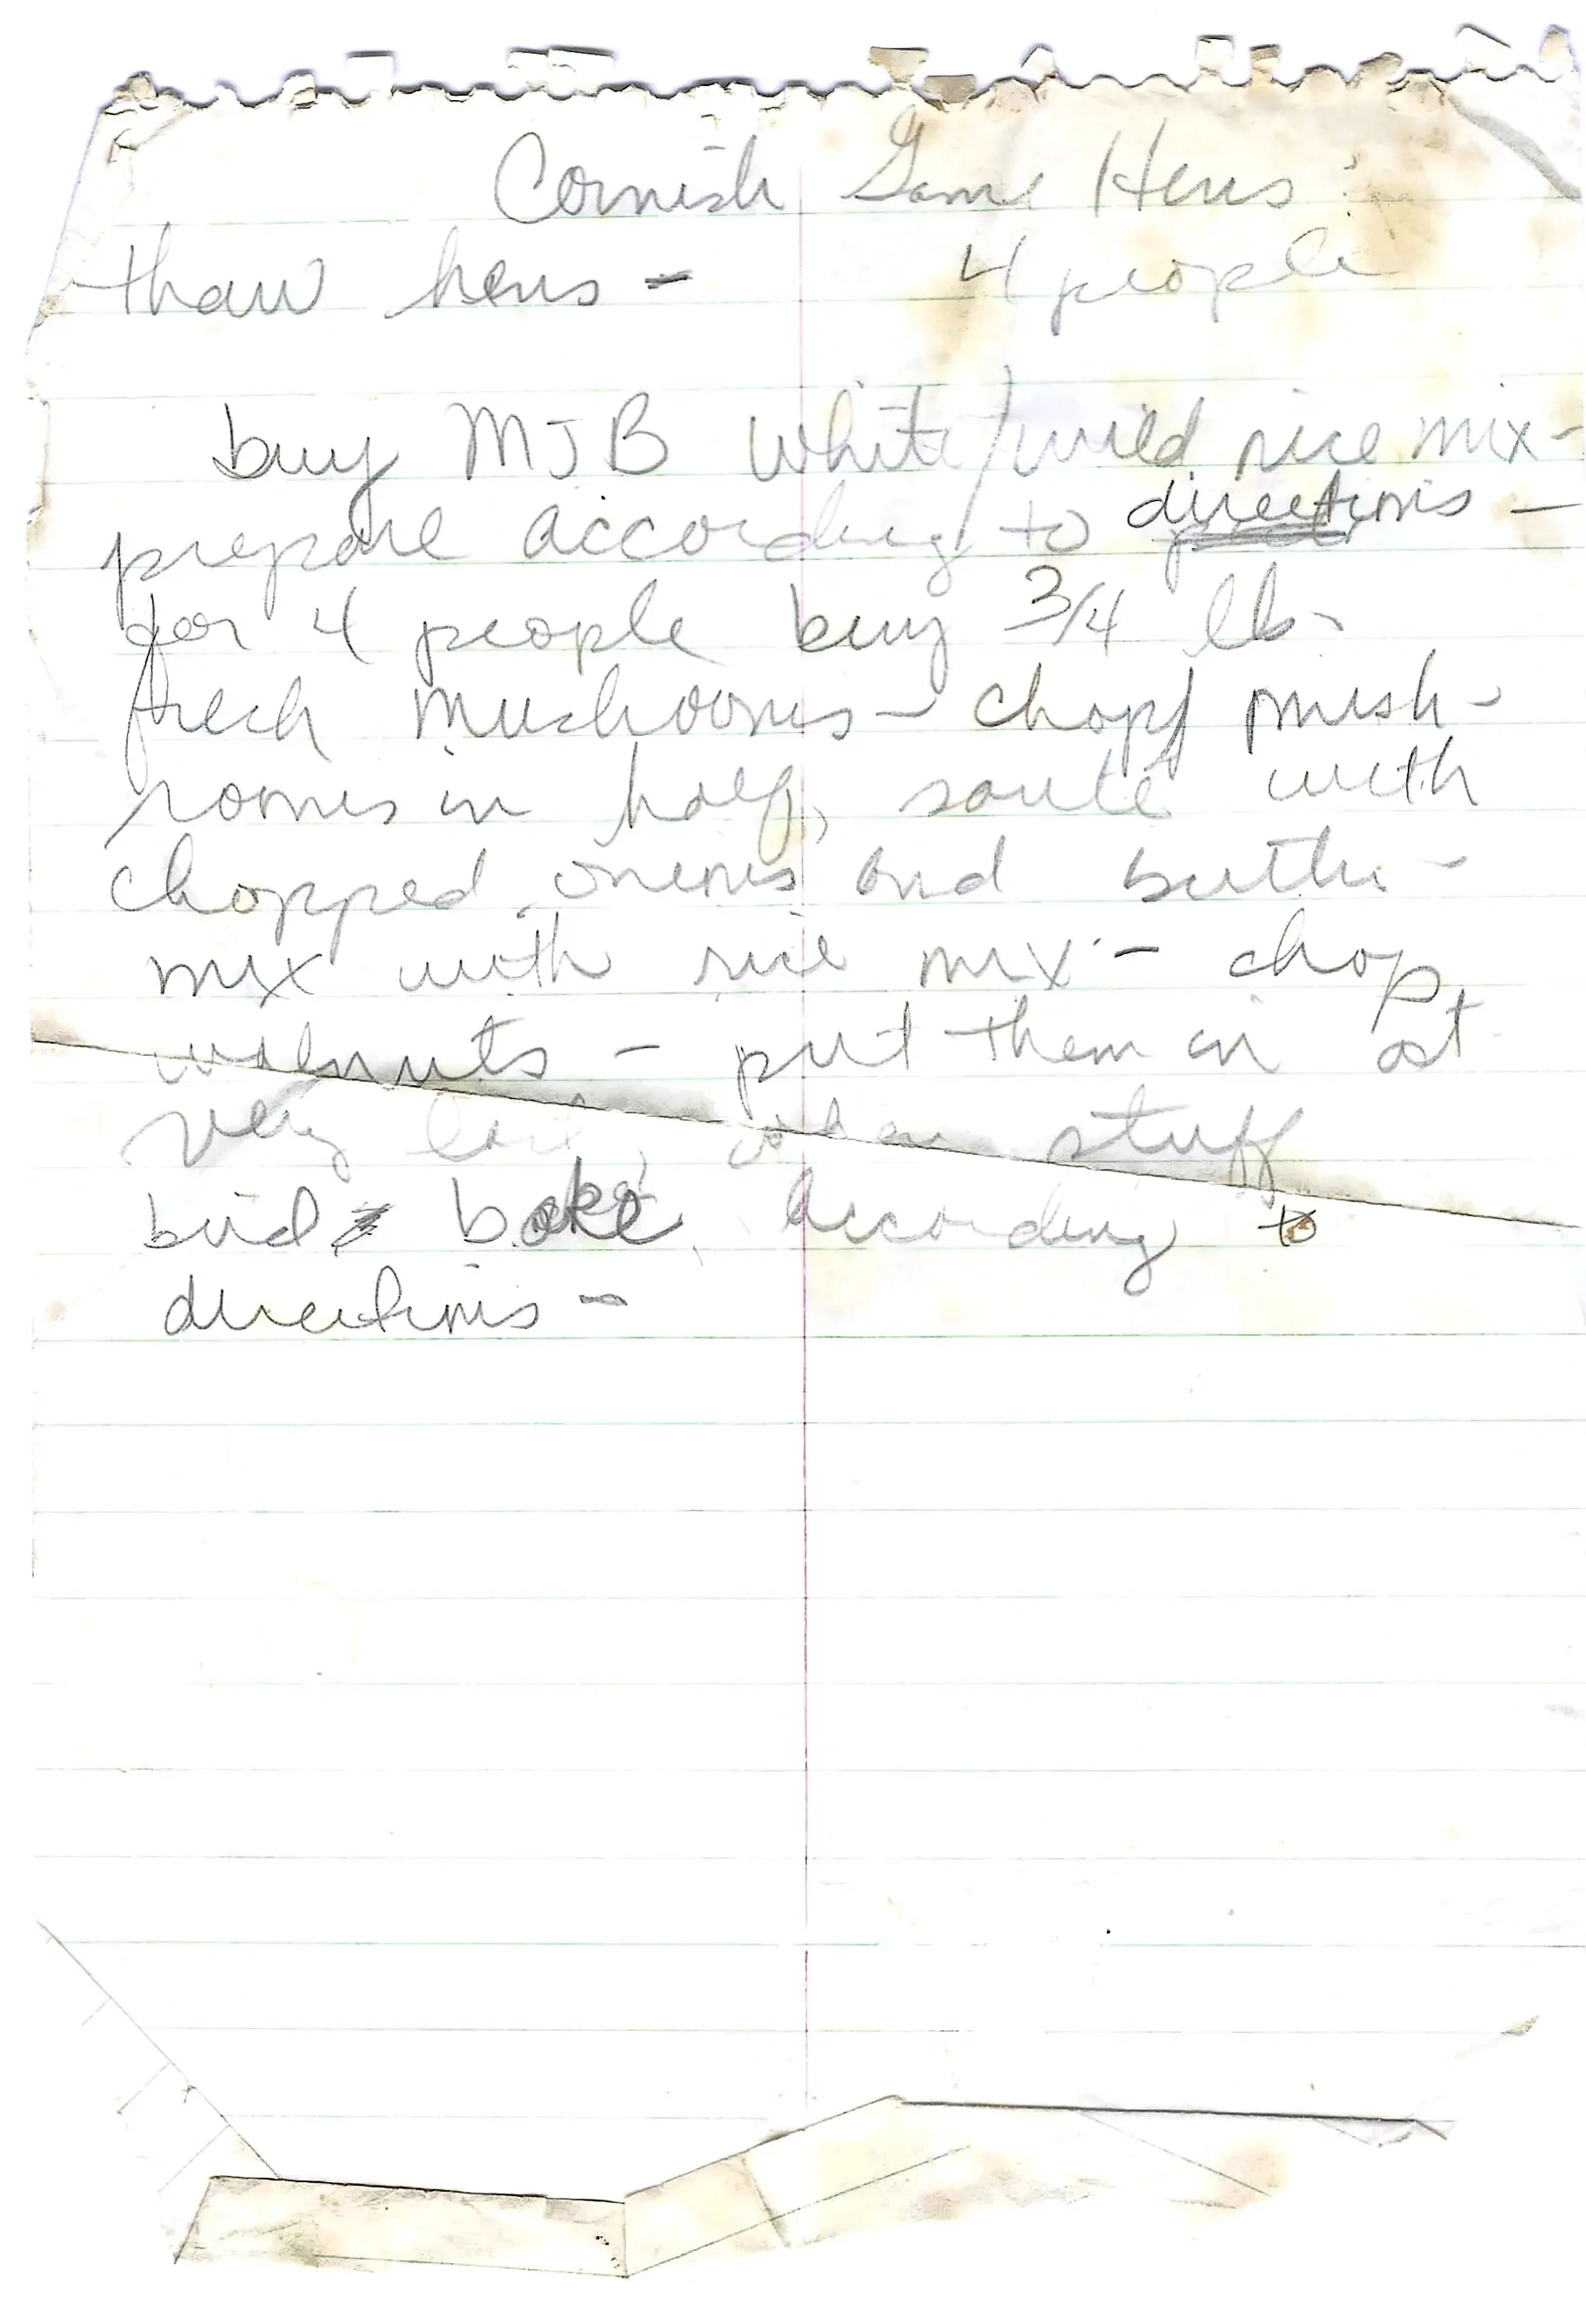 Cornish Game Hens
thaw hens - 4 people
buy MJB white/wild rice mix -
prepare according to directions -
for 4 people buy 3/4 lb.
fresh mushrooms - chop mush-
rooms in half, sauté with
chopped onions and butter -
mix with rice mix - chop
walnuts - put them in at
very last, stuff
bird bake according to
directions -